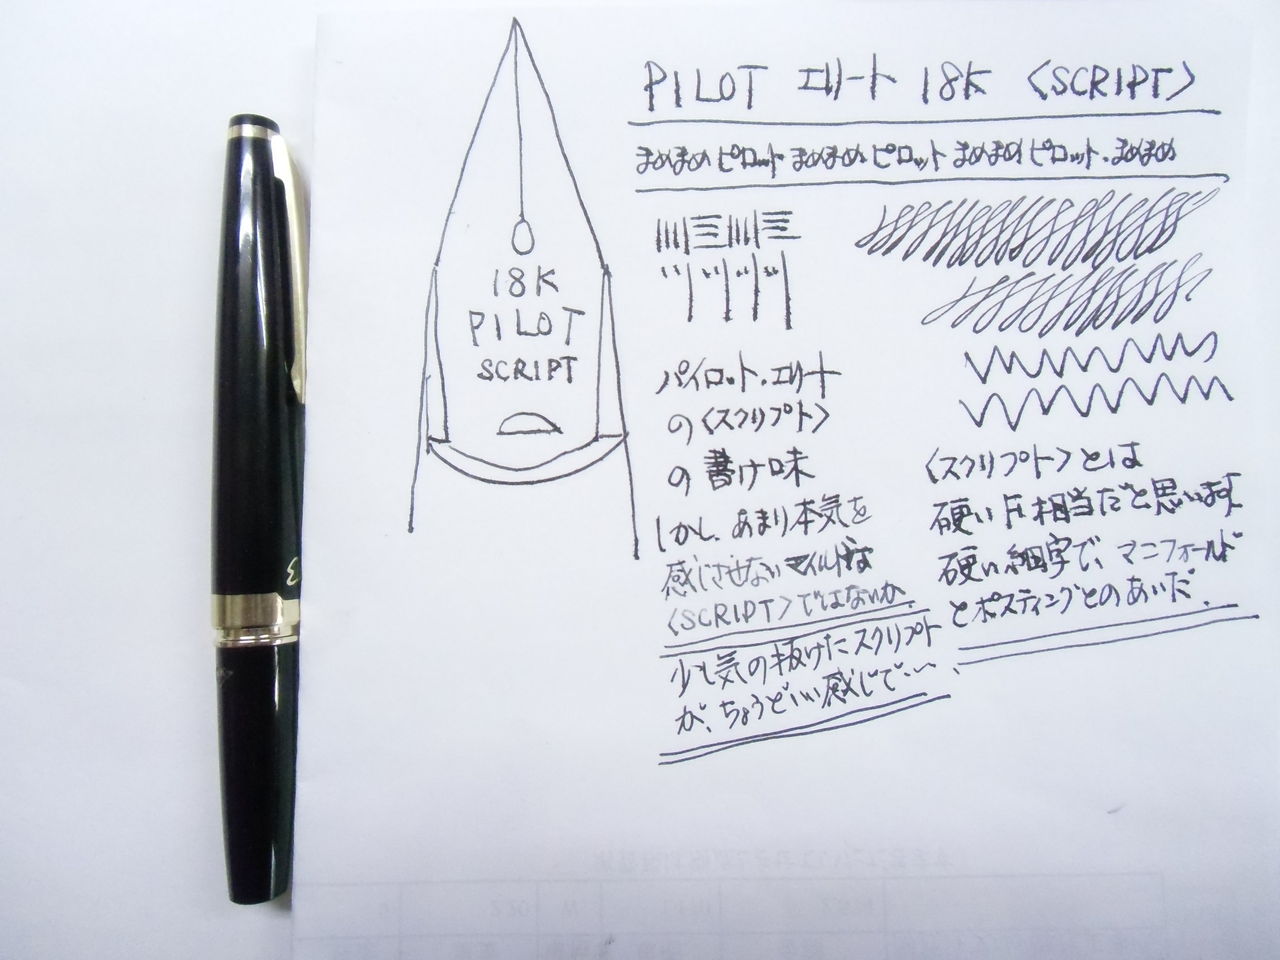 PILOT エリート 18K 〈SCRIPT〉
まめまめピロット まめまめピロット まめまめピロット・まめまめ
18K
PILOT
SCRIPT
パイロット・エリート
の〈スクリプト〉
の書け味
しかし、あまり本気を
感じさせないマイルドな
〈SCRIPT〉ではないか、
少し気の抜けたスクリプト
が、ちょうどいい感じで…
〈スクリプト〉とは
硬いF相当だと思います
硬い細字で、マニフォールド
とポスティングとのあいだ。